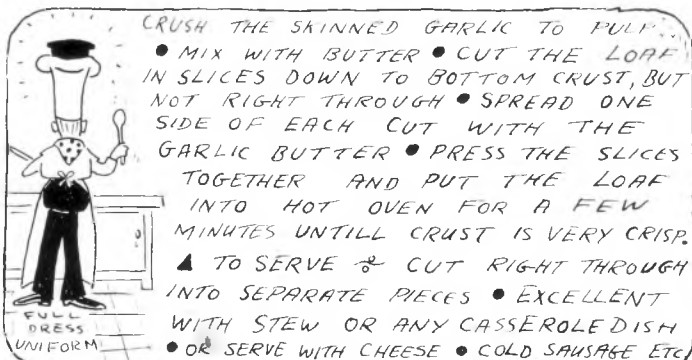 CRUSH THE SKINNED GARLIC TO PULP
● MIX WITH BUTTER ● CUT THE LOAF
IN SLICES DOWN TO BOTTOM CRUST, BUT
NOT RIGHT THROUGH ● SPREAD ONE
SIDE OF EACH CUT WITH THE
GARLIC BUTTER ● PRESS THE SLICES
TOGETHER AND PUT THE LOAF
INTO HOT OVEN FOR A FEW
MINUTES UNTILL CRUST IS VERY CRISP.
▲ TO SERVE ÷ CUT RIGHT THROUGH
INTO SEPARATE PIECES ● EXCELLENT
WITH STEW OR ANY CASSEROLE DISH
● OR SERVE WITH CHEESE ● COLD SAUSAGE ETC
FULL
DRESS
UNIFORM